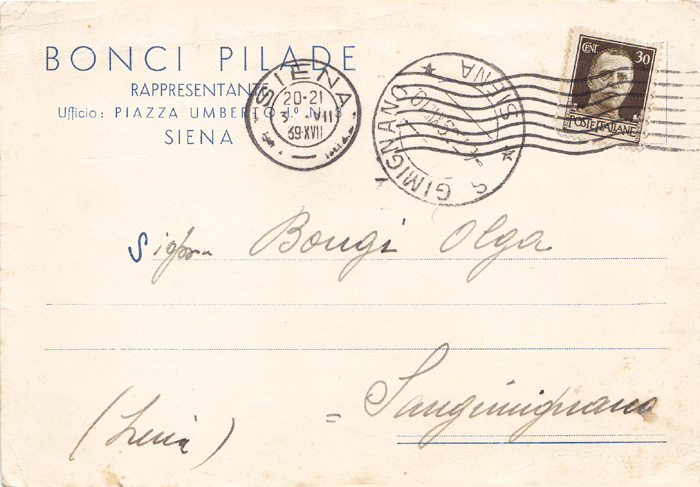 BONCI PILADE
RAPPRESENTANTE
Ufficio: PIAZZA UMBERTO I.º N. 8
SIENA
SIENA
20-21
39·XVII
S. GIMIGNANO
SIENA
CENT. 30
POSTE ITALIANE
Bongi Olga
= Sangimignano
(Siena)